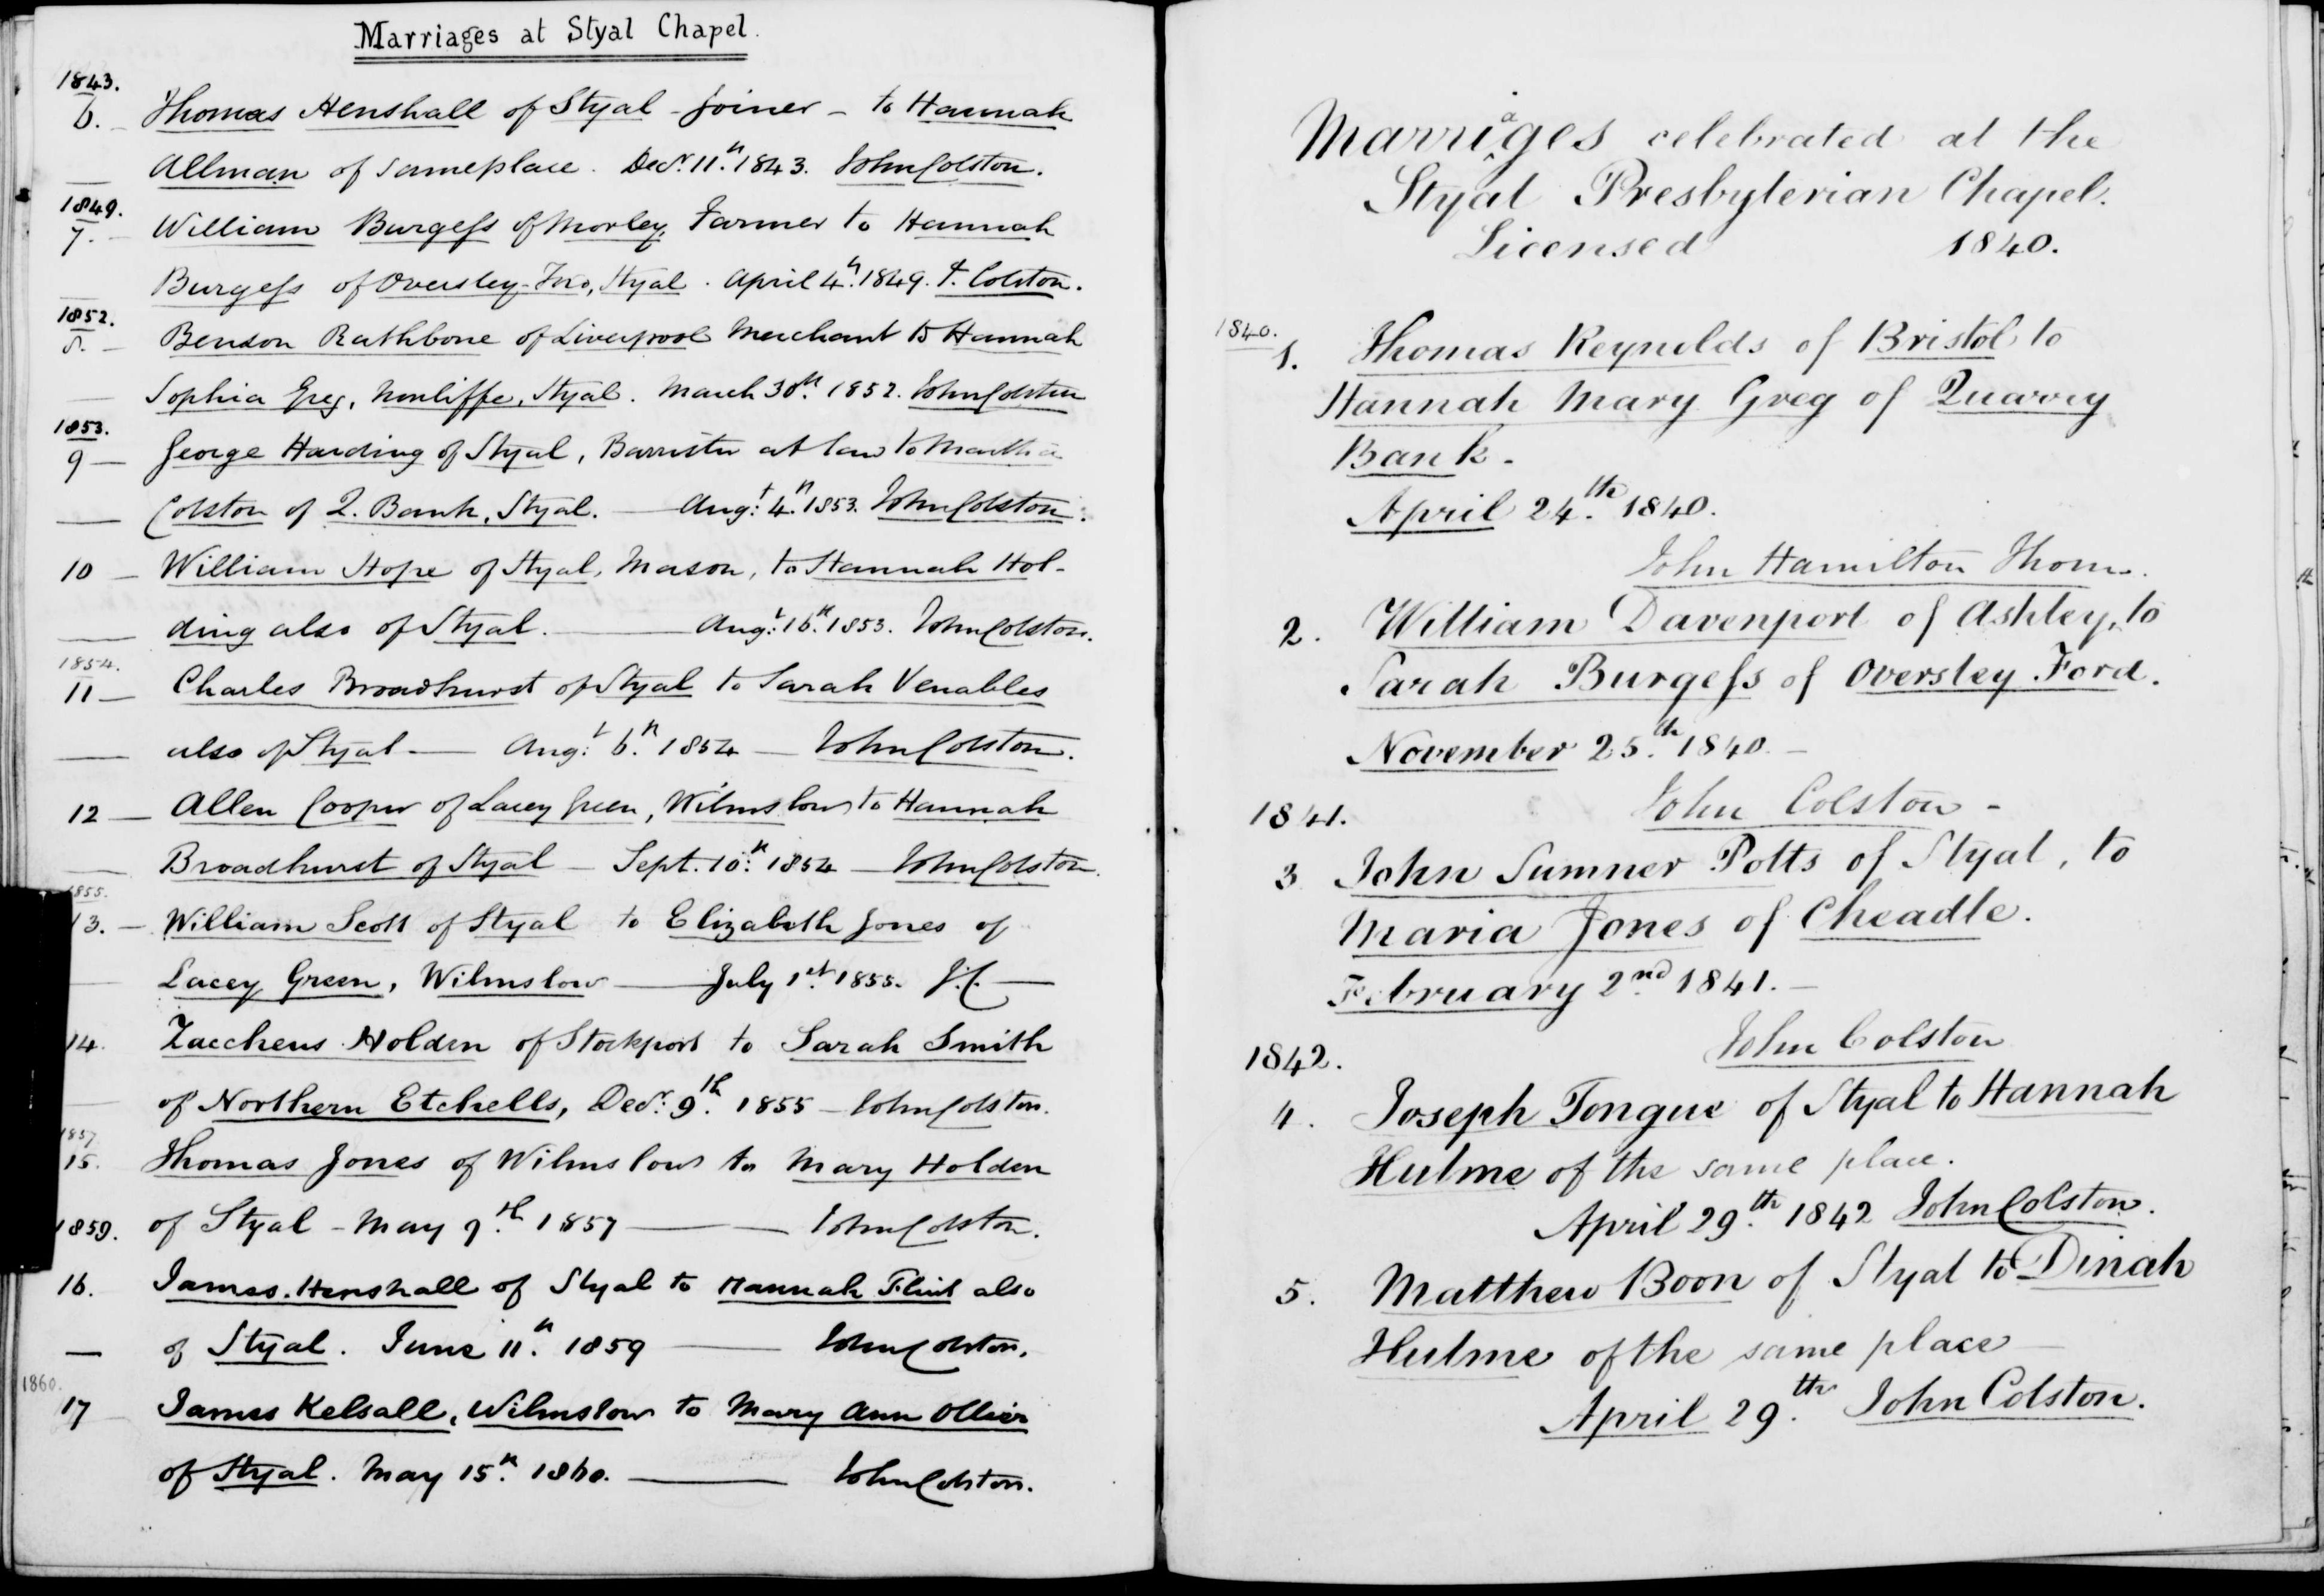 Marriages at Styal Chapel.
1843.
6. Thomas Henshall of Styal - Joiner - to Hannah
Allman of same place. Decr. 11th. 1843. John Colston.
1849.
7. William Burgess of Morley, Farmer to Hannah
Burgess of Oversley-Ford, Styal. April 4th. 1849. J. Colston.
1852.
8. Benson Rathbone of Liverpool Merchant to Hannah
Sophia Greg, Norcliffe, Styal. March 30th. 1852. John Colston
1853.
9 George Harding of Styal, Barrister at law to Martha
Colston of Q. Bank, Styal. Augt. 4th. 1853. John Colston.
10 William Hope of Styal, Mason, to Hannah Hol-
ding also of Styal. Augt. 16th. 1853. John Colston.
1854.
11 Charles Broadhurst of Styal to Sarah Venables
also of Styal Augt. 6th. 1854 John Colston.
12 Allen Cooper of Lacey Green, Wilmslow to Hannah
Broadhurst of Styal - Sept. 10th. 1854 John Colston.
1855.
13. William Scott of Styal to Elizabeth Jones of
Lacey Green, Wilmslow July 1st. 1855. J.C.
14. Zaccheus Holden of Stockport to Sarah Smith
of Northern Etchells, Decr. 9th. 1855 - John Colston.
1857
15. Thomas Jones of Wilmslow to Mary Holden
of Styal - May 9th. 1857 John Colston.
1859.
16. James Henshall of Styal to Hannah Flint also
of Styal. June 11th. 1859 John Colston.
1860.
17 James Kelsall, Wilmslow to Mary Ann Ollier
of Styal. May 15th. 1860. John Colston.
Marriages celebrated at the
Styal Presbyterian Chapel.
Licensed 1840.
1840.
1. Thomas Reynolds of Bristol to
Hannah Mary Greg of Quarry
Bank.
April 24.th 1840.
John Hamilton Thom.
2. William Davenport of Ashley, to
Sarah Burgess of Oversley Ford.
November 25.th 1840.
John Colston -
1841.
3 John Sumner Potts of Styal, to
Maria Jones of Cheadle.
February 2nd 1841.
John Colston
1842.
4. Joseph Tongue of Styal to Hannah
Hulme of the same place.
April 29.th 1842 John Colston.
5. Matthew Boon of Styal to Dinah
Hulme of the same place
April 29.th John Colston.